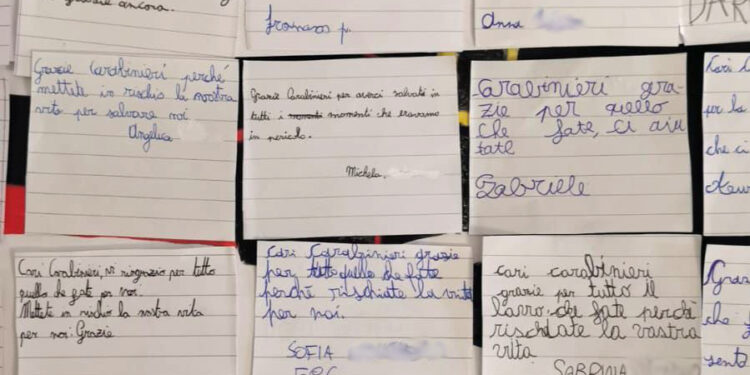 ancora.
Francesco p.
Anna
DAR
Grazie Carabinieri perché
mettete in rischio la vostra
vita per salvare noi
Angelica
Grazie Carabinieri per averci salvato in
tutti i momenti che eravamo
in pericolo.
Michela
Carabinieri gra-
zie per quello
che fate, ci aiu
tate
Gabriele
Cari
per la
che ci
Cari Carabinieri, vi ringrazio per tutto
quello che fate per noi.
Mettete in rischio la vostra vita
per noi. Grazie
Cari Carabinieri grazie
per tutto quello che fate
perché rischiate la vita
per noi.
SOFIA
cari carabinieri
grazie per tutto il
lavoro che fate perché
rischiate la vostra
vita
SABRINA
Graz
che
senta